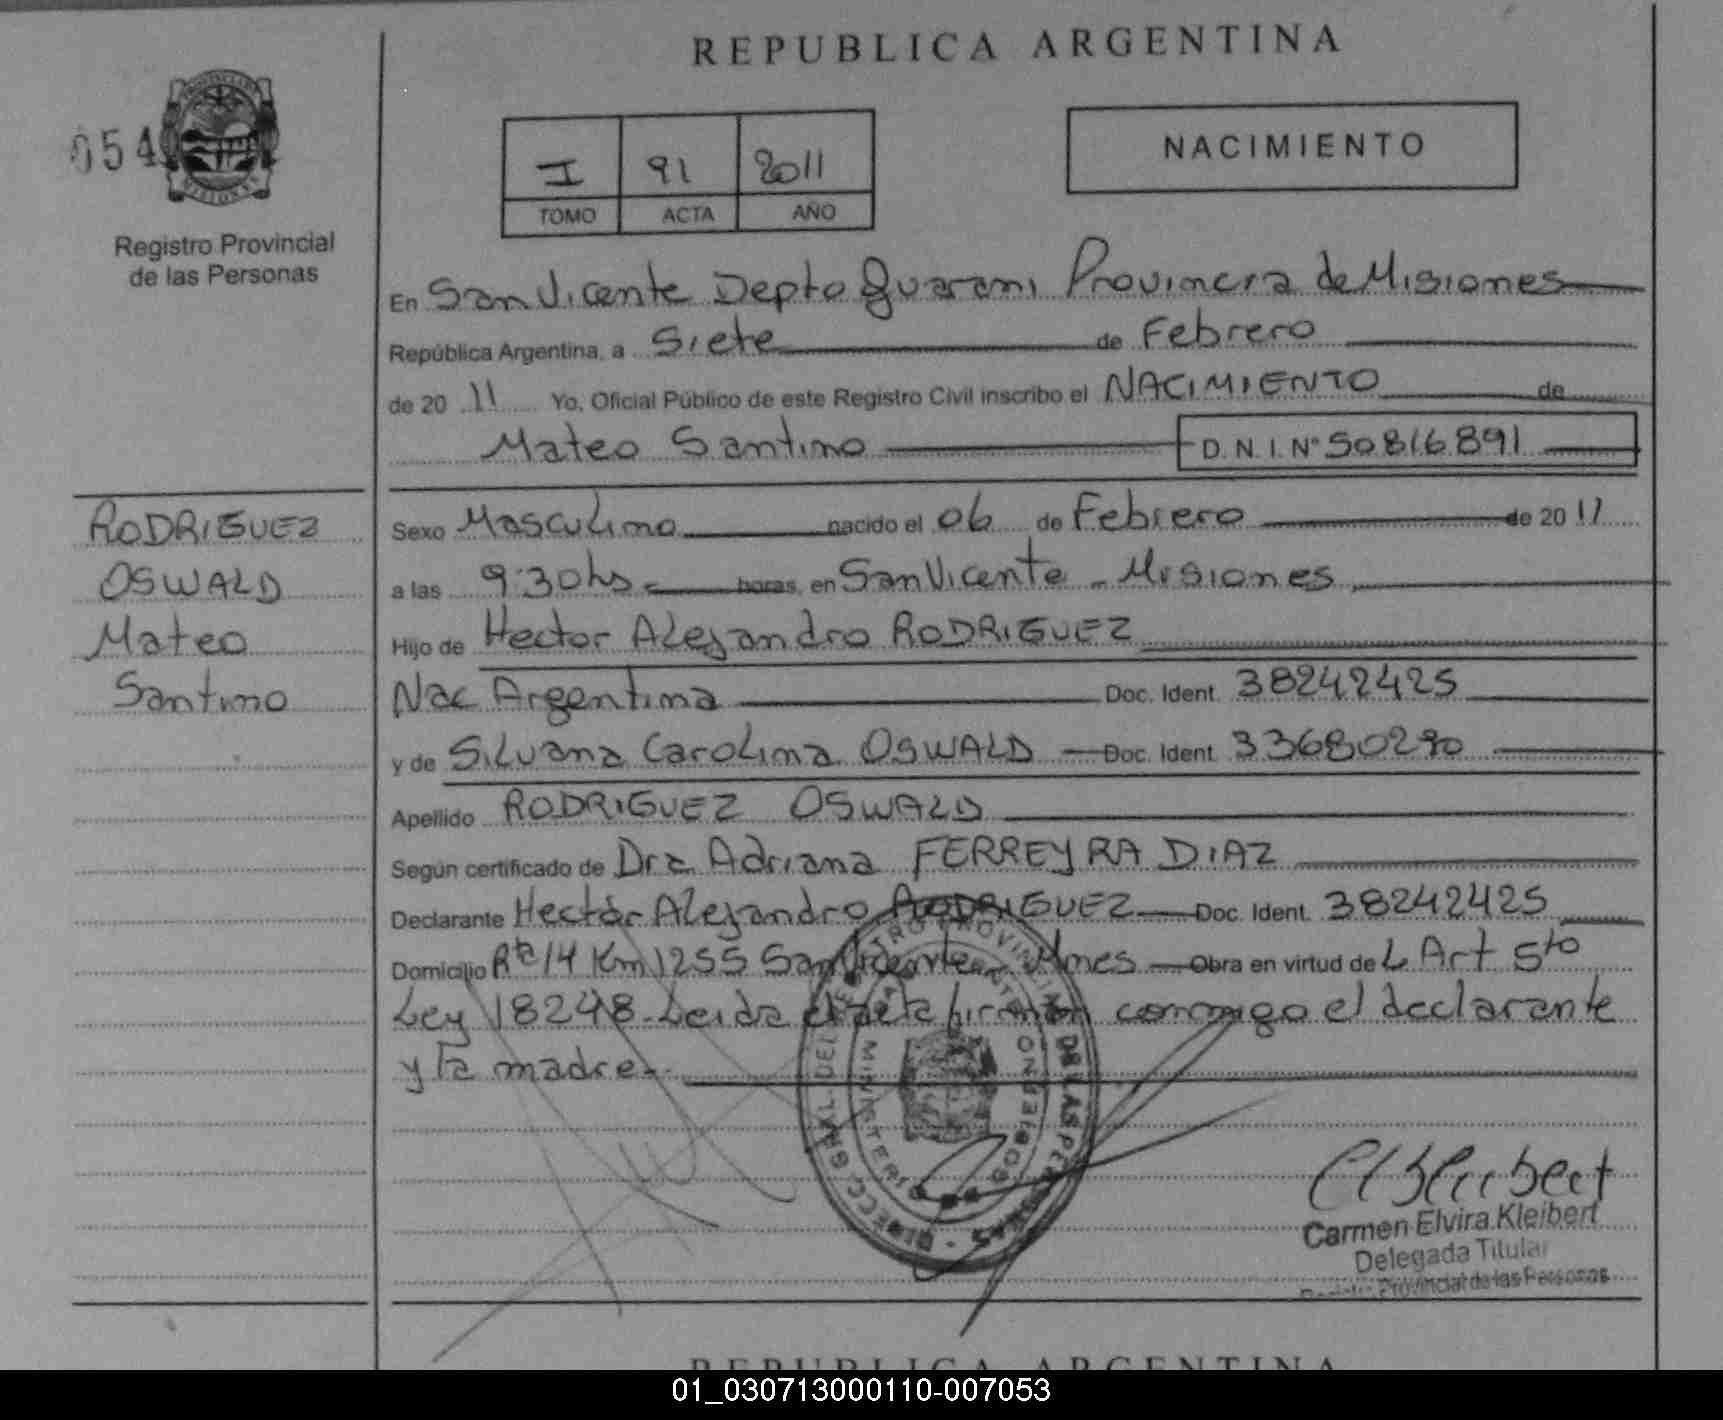 REPUBLICA ARGENTINA
054
I 91 2011
TOMO ACTA AÑO
NACIMIENTO
Registro Provincial
de las Personas
En San Vicente Depto Guarani Provincia de Misiones
República Argentina, a Siete de Febrero
de 20 11 Yo, Oficial Público de este Registro Civil inscribo el NACIMIENTO de
Mateo Santino D.N.I. Nº 50816891
RODRIGUEZ
OSWALD
Mateo
Santino
Sexo Masculino nacido el 06 de Febrero de 20 11
a las 9:30hs horas, en San Vicente - Misiones
Hijo de Hector Alejandro RODRIGUEZ
Nac Argentina Doc. Ident. 38242425
y de Silvana Carolina OSWALD Doc. Ident. 33680290
Apellido RODRIGUEZ OSWALD
Según certificado de Dra Adriana FERREYRA DIAZ
Declarante Hector Alejandro RODRIGUEZ Doc. Ident. 38242425
Domicilio Rta 14 Km 1255 San Vicente Mnes Obra en virtud de L Art 5to
Ley 18248. Leida el acta firman conmigo el declarante
y la madre.
MINISTERIO
DE LAS PERSONAS
Carmen Elvira Kleibert
Delegada Titular
Provincial de las Personas
REPUBLICA ARGENTINA
01_030713000110-007053